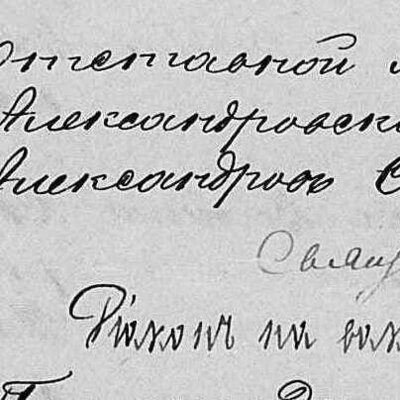 Отставной
Александровск
Александровъ С
Свящ
Діаконъ на вак